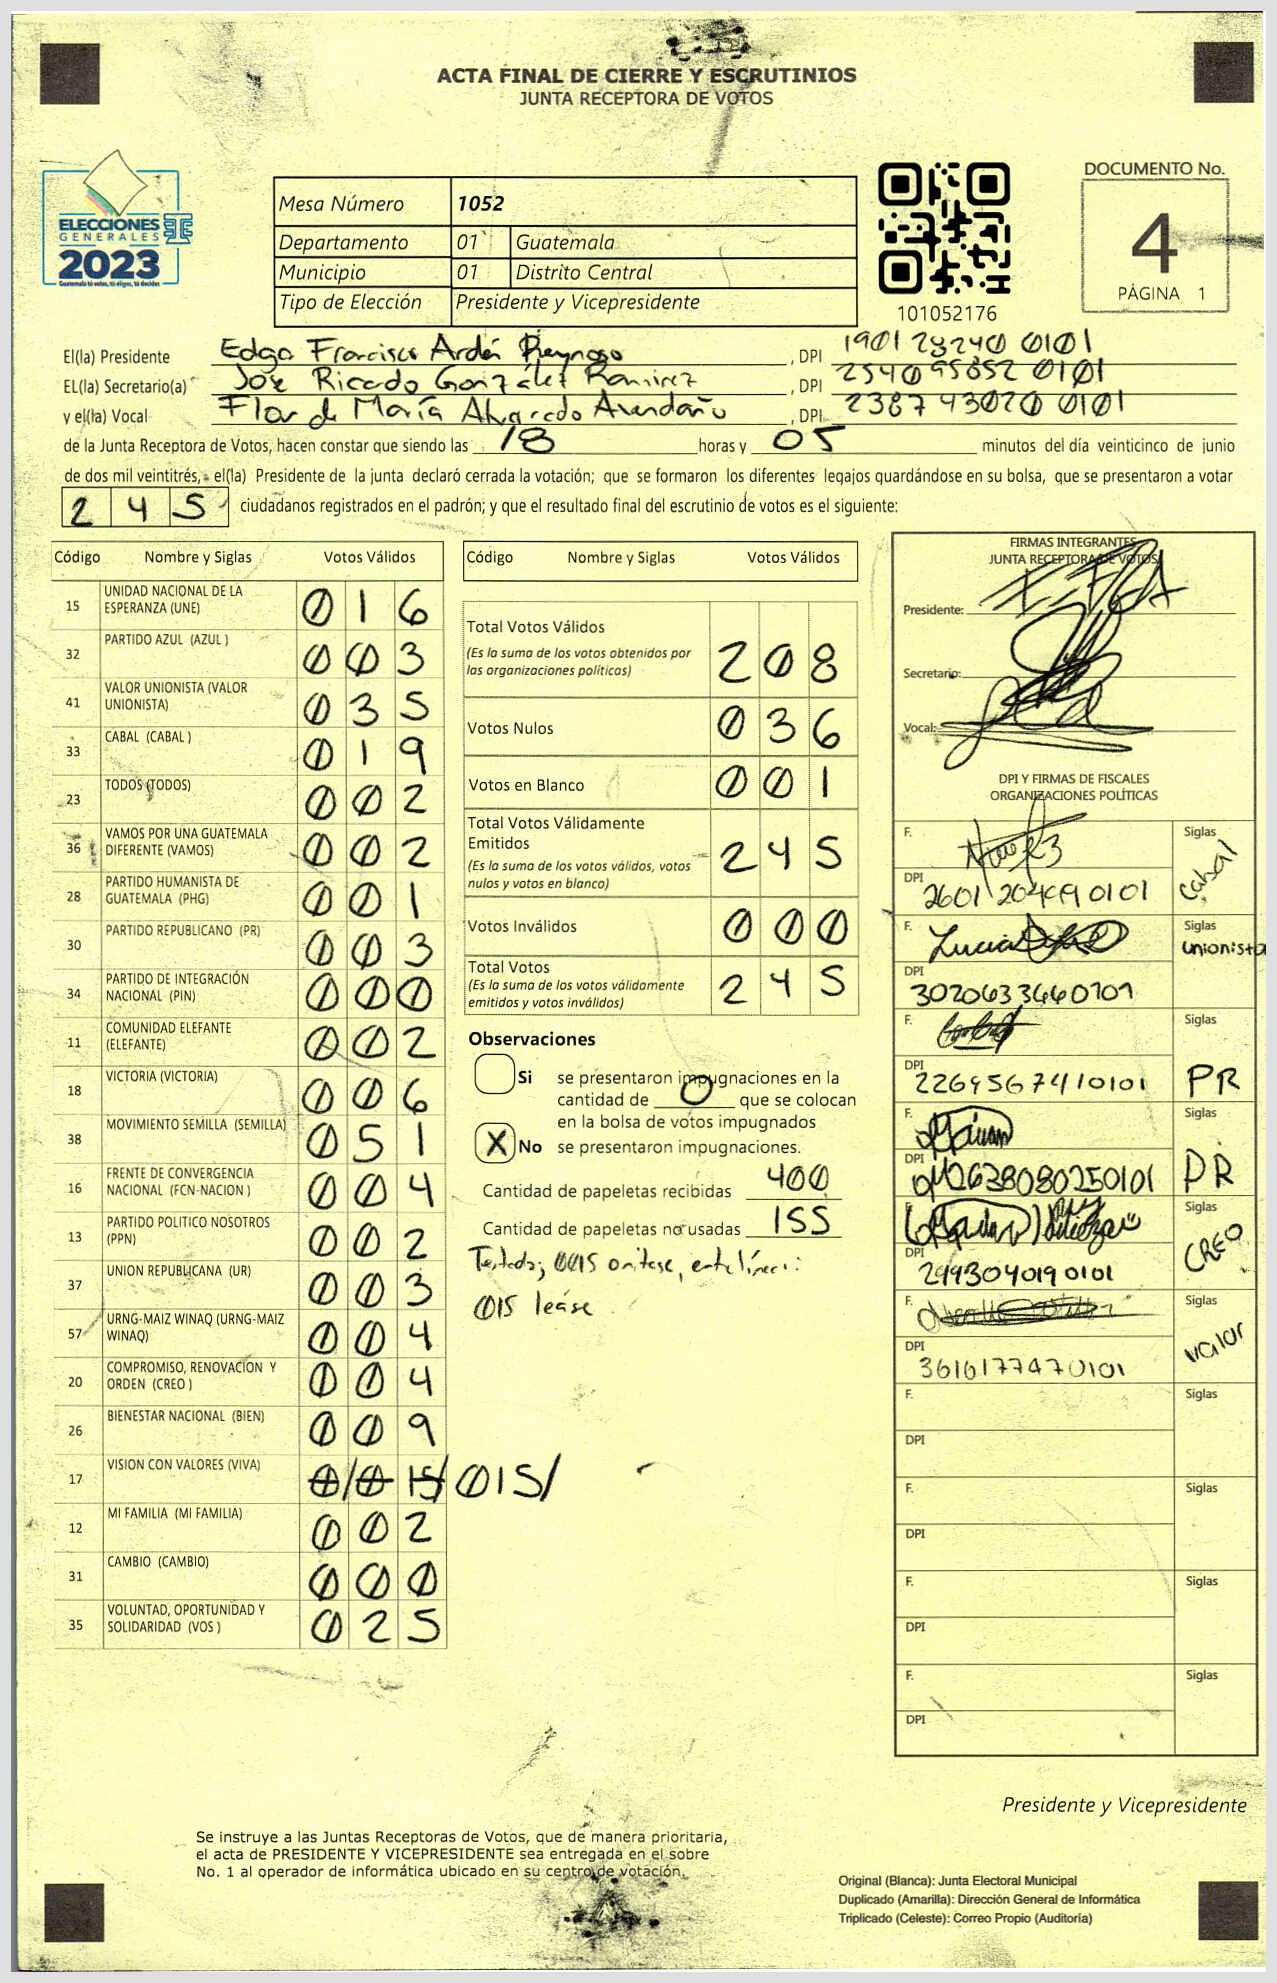 ACTA FINAL DE CIERRE Y ESCRUTINIOS
JUNTA RECEPTORA DE VOTOS
ELECCIONES
GENERALES
2023
Guatemala tú votas, tú eliges, tú decides
Mesa Número 1052
Departamento 01 Guatemala
Municipio 01 Distrito Central
Tipo de Elección Presidente y Vicepresidente
101052176
DOCUMENTO No.
4
PÁGINA 1
El(la) Presidente Edga Francisco Ardón Reynoso, DPI 1901 28240 0101
EL(la) Secretario(a) José Ricardo González Ramirez, DPI 2540 95852 0101
y el(la) Vocal Flor de María Alvarado Avendaño, DPI 2387 43020 0101
de la Junta Receptora de Votos, hacen constar que siendo las 18 horas y 05 minutos del día veinticinco de junio
de dos mil veintitrés, el(la) Presidente de la junta declaró cerrada la votación; que se formaron los diferentes legajos guardándose en su bolsa, que se presentaron a votar
2 4 5 ciudadanos registrados en el padrón; y que el resultado final del escrutinio de votos es el siguiente:
Código Nombre y Siglas Votos Válidos
15 UNIDAD NACIONAL DE LA ESPERANZA (UNE) 0 1 6
32 PARTIDO AZUL (AZUL ) 0 0 3
41 VALOR UNIONISTA (VALOR UNIONISTA) 0 3 5
33 CABAL (CABAL ) 0 1 9
23 TODOS (TODOS) 0 0 2
36 VAMOS POR UNA GUATEMALA DIFERENTE (VAMOS) 0 0 2
28 PARTIDO HUMANISTA DE GUATEMALA (PHG) 0 0 1
30 PARTIDO REPUBLICANO (PR) 0 0 3
34 PARTIDO DE INTEGRACIÓN NACIONAL (PIN) 0 0 0
11 COMUNIDAD ELEFANTE (ELEFANTE) 0 0 2
18 VICTORIA (VICTORIA) 0 0 6
38 MOVIMIENTO SEMILLA (SEMILLA) 0 5 1
16 FRENTE DE CONVERGENCIA NACIONAL (FCN-NACION ) 0 0 4
13 PARTIDO POLITICO NOSOTROS (PPN) 0 0 2
37 UNION REPUBLICANA (UR) 0 0 3
57 URNG-MAIZ WINAQ (URNG-MAIZ WINAQ) 0 0 4
20 COMPROMISO, RENOVACIÓN Y ORDEN (CREO ) 0 0 4
26 BIENESTAR NACIONAL (BIEN) 0 0 9
17 VISION CON VALORES (VIVA) 0/0 15/ 015/
12 MI FAMILIA (MI FAMILIA) 0 0 2
31 CAMBIO (CAMBIO) 0 0 0
35 VOLUNTAD, OPORTUNIDAD Y SOLIDARIDAD (VOS ) 0 2 5
Código Nombre y Siglas Votos Válidos
Total Votos Válidos 2 0 8
(Es la suma de los votos obtenidos por
las organizaciones políticas)
Votos Nulos 0 3 6
Votos en Blanco 0 0 1
Total Votos Válidamente
Emitidos 2 4 5
(Es la suma de los votos válidos, votos
nulos y votos en blanco)
Votos Inválidos 0 0 0
Total Votos 2 4 5
(Es la suma de los votos válidamente
emitidos y votos inválidos)
Observaciones
Si se presentaron impugnaciones en la
cantidad de 0 que se colocan
en la bolsa de votos impugnados
X No se presentaron impugnaciones.
Cantidad de papeletas recibidas 400
Cantidad de papeletas no usadas 155
Testado; 0015 omitase, entelíneas:
015 leáse
FIRMAS INTEGRANTES
JUNTA RECEPTORA DE VOTOS
Presidente:
Secretario:
Vocal:
DPI Y FIRMAS DE FISCALES
ORGANIZACIONES POLÍTICAS
F. Siglas Cabal
DPI
F. Lucia Siglas unionista
DPI 3020633660101
F. Siglas PR
DPI 22695567410101
F. Siglas PR
DPI 2638080250101
F. Siglas CREO
DPI 2993040190101
F. Siglas valor
DPI 3616177470101
F. Siglas
DPI
F. Siglas
DPI
F. Siglas
DPI
F. Siglas
DPI
Presidente y Vicepresidente
Se instruye a las Juntas Receptoras de Votos, que de manera prioritaria,
el acta de PRESIDENTE Y VICEPRESIDENTE sea entregada en el sobre
No. 1 al operador de informática ubicado en su centro de votación.
Original (Blanca): Junta Electoral Municipal
Duplicado (Amarilla): Dirección General de Informática
Triplicado (Celeste): Correo Propio (Auditoría)